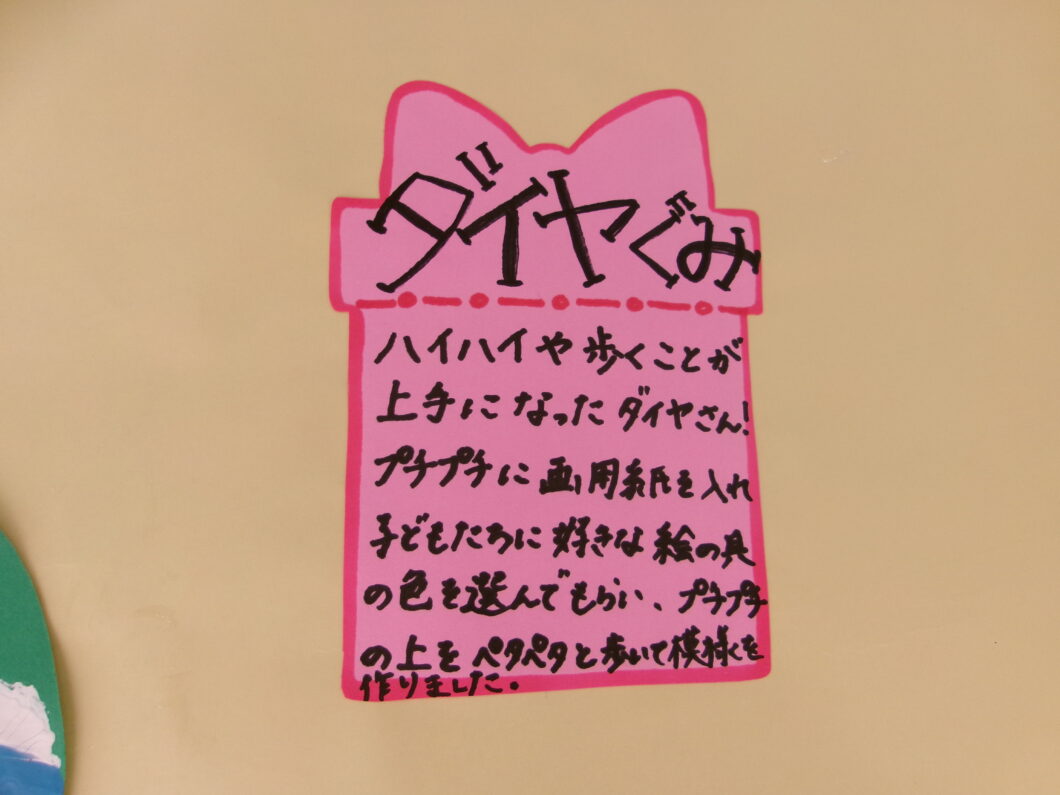 ダイヤぐみ
ハイハイや歩くことが
上手になったダイヤさん!
プチプチに画用紙を入れ
子どもたちに好きな絵の具
の色を選んでもらい、プチプチ
の上をペタペタと歩いて模様を
作りました。